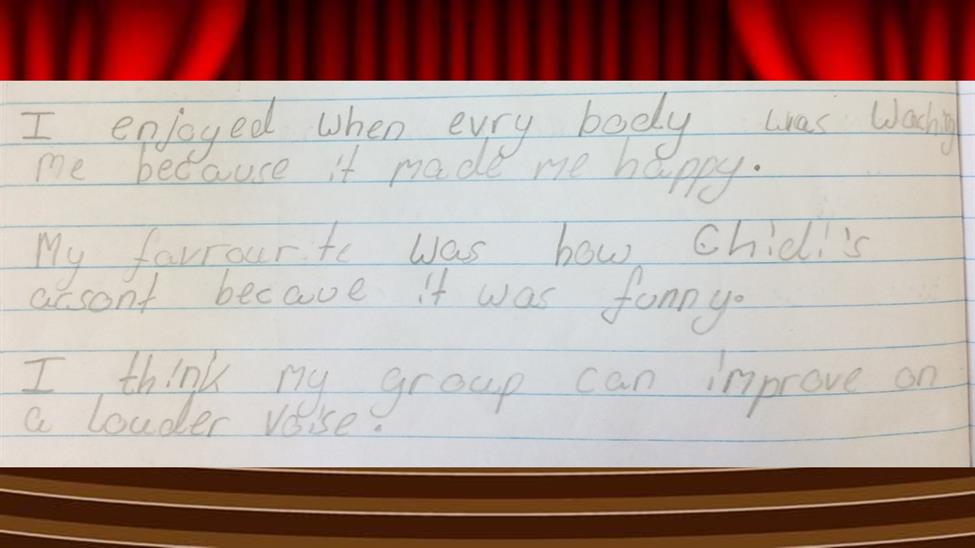 I enjoyed when evry body was waching
me because it made me happy.
My favrourite was how Chidi's
acsont becaue it was funny.
I think my group can improve on
a louder voise.